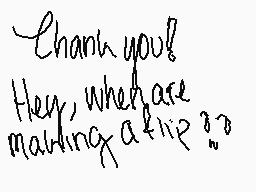 Thank you!
Hey, when are
making a flip ??